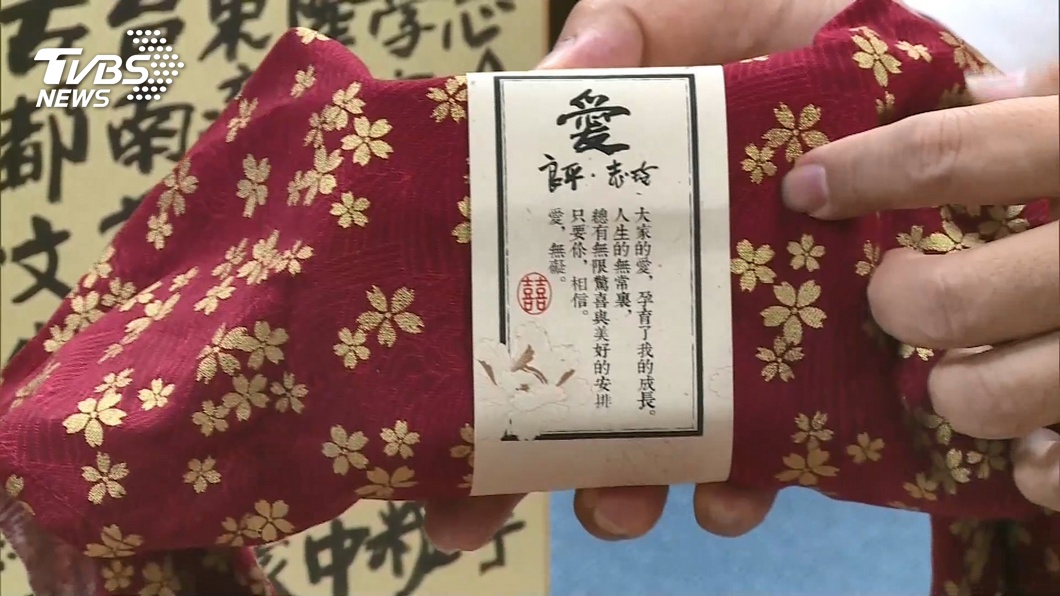 TVBS
NEWS
學
東
台南
古都文
中
愛
良平·志玲
大家的愛，孕育了我的成長。
人生的無常裏，
總有無限驚喜與美好的安排
只要你，相信。
愛，無礙。
囍